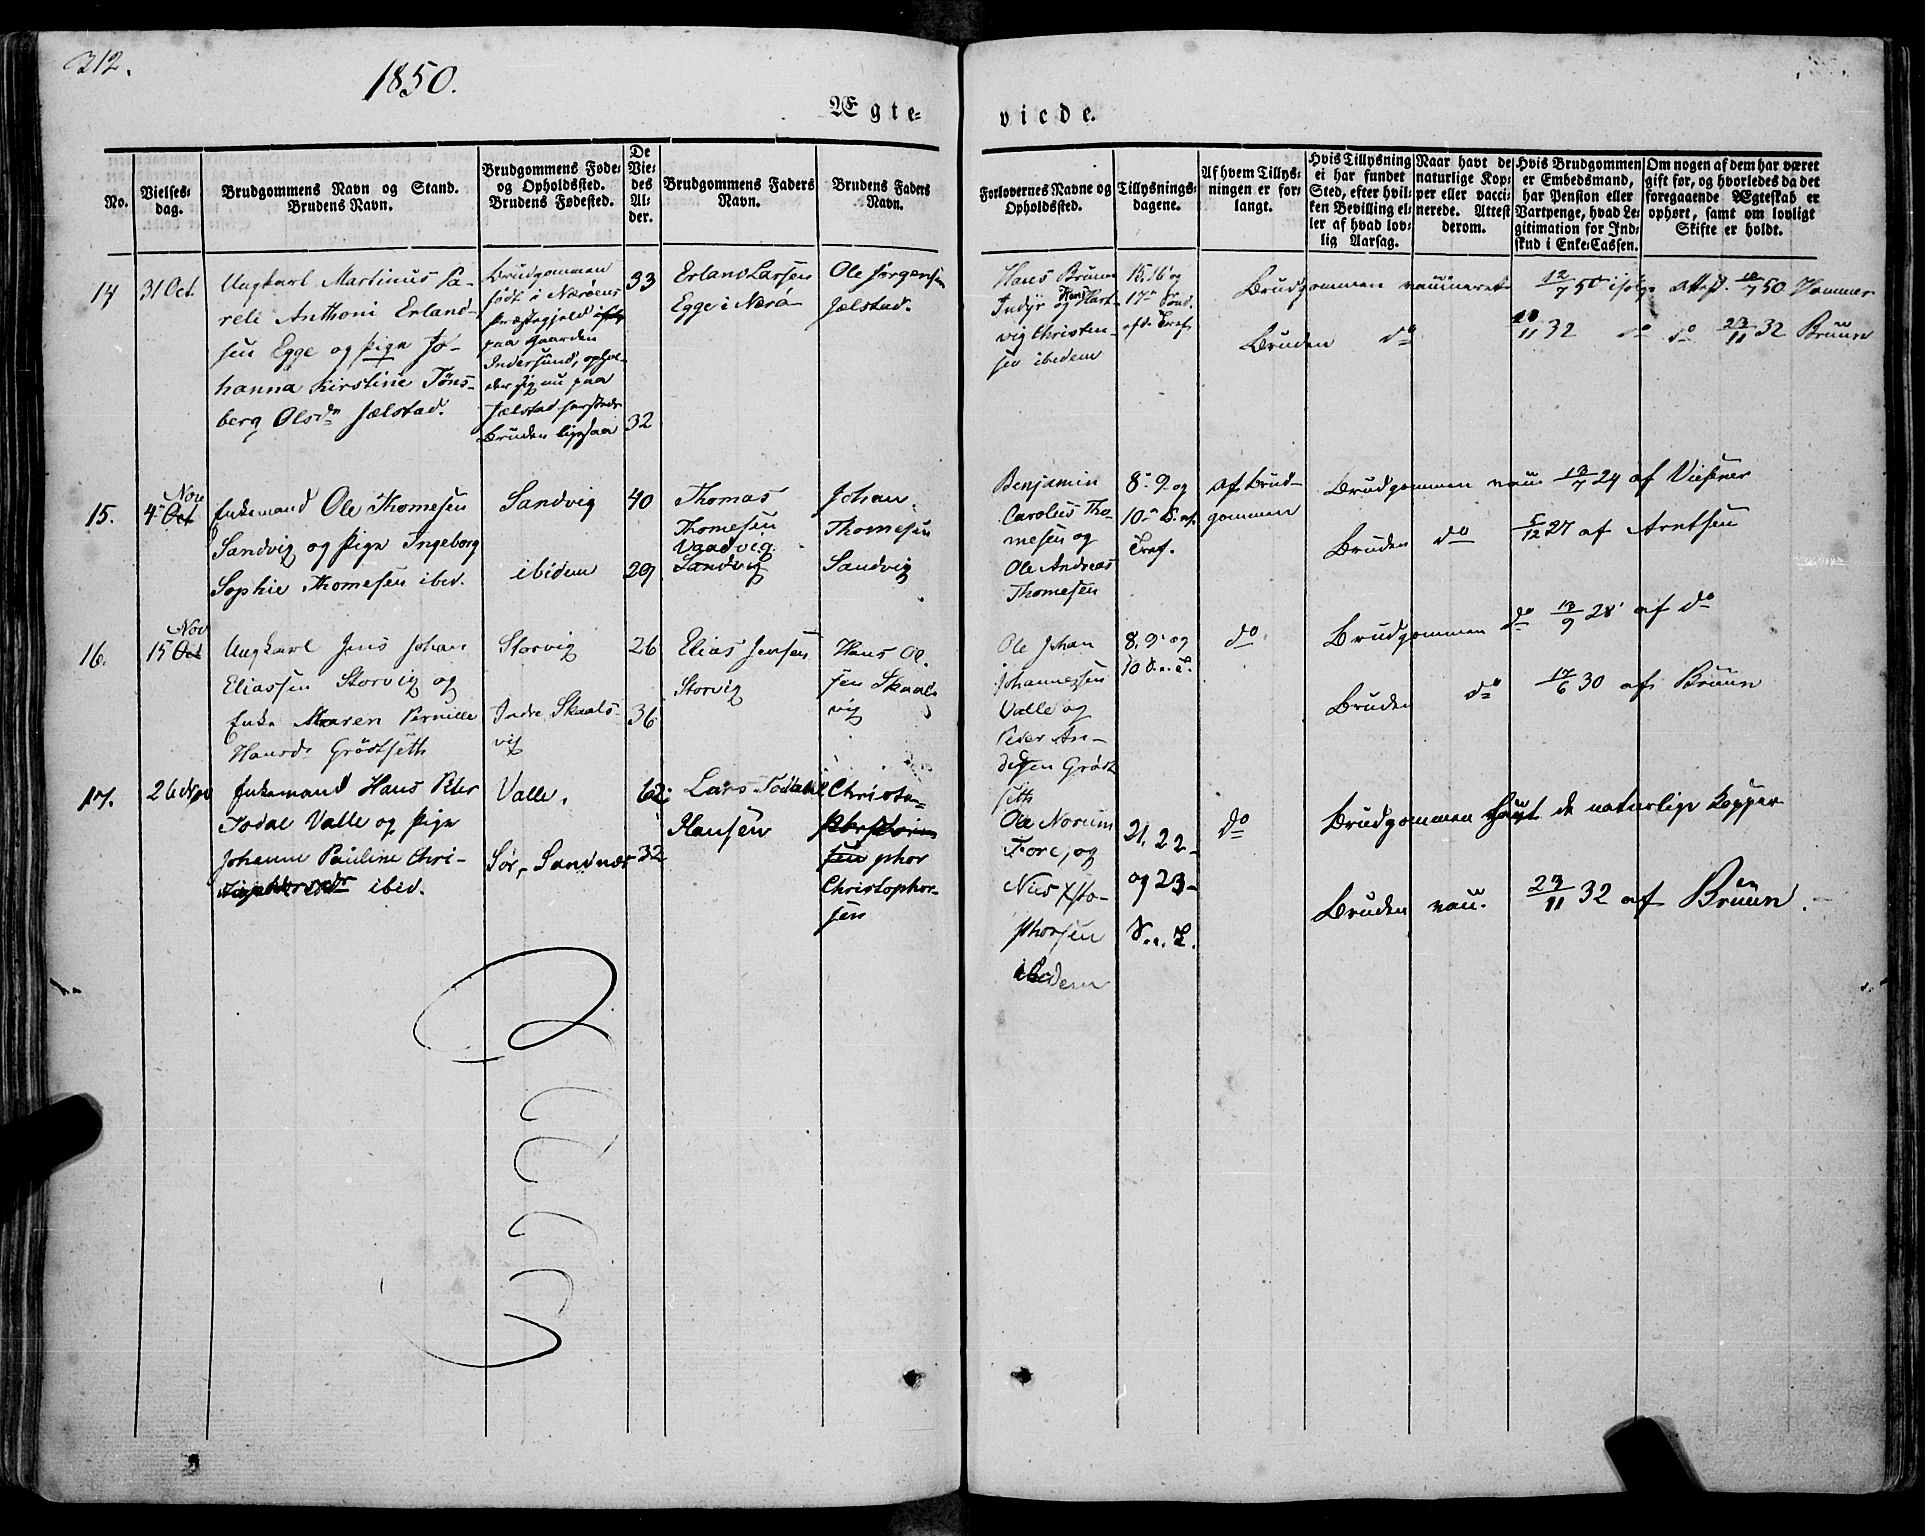 212.
1850.
Ægte=
viede.
No.
Vielses-
dag.
Brudgommens Navn og Stand.
Brudens Navn.
Brudgommens Føde-
og Opholdssted.
Brudens Fødested.
De
Vie-
des
Al-
der.
Brudgommens Faders
Navn.
Brudens Faders
Navn.
Forlovernes Navne og
Opholdssted.
Tillysnings-
dagene.
Af hvem Tillys-
ningen er for-
langt.
Hvis Tillysning
ei har fundet
Sted, efter hvil-
ken Bevilling el-
ler af hvad lov-
lig Aarsag.
Naar havt de
naturlige Kop-
per eller vacci-
nerede. Attest
derom.
Hvis Brudgommen
er Embedsmand,
har Pension eller
Vartpenge, hvad Le-
gitimation for Ind-
skud i Enke-Cassen.
Om nogen af dem har været
gift før, og hvorledes da det
foregaaende Ægteskab er
ophørt, samt om lovligt
Skifte er holdt.
14
31 Oct.
Ungkarl Martinus Pa-
reli Anthoni Erland-
sen Egge og Pige Jo-
hanna Kirstine Töns-
berg Olsdr Jælstad.
Brudgommen
født i Næröens
Præstegjeld
paa Gaarden
Indersund, ophol-
der sig nu paa
Jælstad
Bruden ligesaa
33
32
Erland Larsen
Egge i Nærö
Ole Jörgensen
Jælstad.
Hans Bruun
Indyr og Hans Hart-
vig Christen-
sen ibedem
15, 16 og
17de Sönd.
efd. Tref.
Brudgommen vaccineret 12/7 50 ifølge Attest 12/7 50 Hammer
Bruden do 20/11 32 do do 23/11 32 Bruun
15.
Nov
4de Oct
Enkemand Ole Thomesen
Sandvig og Pige Ingeborg
Sophie Thomesen ibid.
Sandvig
ibidem
40
29
Thomas
Thomesen
Vaadvig
Sandvig
Johan
Thomesen
Sandvig
Benjamin
Carolus Tho-
mesen og
Ole Andreas
Thomesen
8de 9de og
10de S. ef.
Tref.
Af Brud-
gommen
Brudgommen vacc 13/7 24 af Viesner
Bruden do 5/12 27 af Arntsen
16.
Nov
15 Oct
Ungkarl Jens Johan
Eliassen Storvig og
Enke Maren Pernille
Hansdr Grödtseth
Storvig
Indre Skaals-
vig
26
36
Elias Jensen
Storvig
Hans Ol-
sen Skaals
vig
Ole Johan
Johannessen
Valle og
Peder An-
dersen Grödt
seth
8. 9de og
10 S. e. T.
do.
Brudgommen do 13/9 28 af do
Bruden do 17/6 30 af Bruun
17.
26 Nov
Enkemand Hans Peter
Todal Valle og Pige
Johanne Pauline Chri-
ibid.
Valle.
Sör, Sandnæs
62
32
Lars Todal
Hansen
Christo-
sen phor
Christophor-
sen
Ole Norum
Fore, og
Niels Xsto-
phorsen
ibidem
21, 22-
og 23-
S. e. T.
do
Brudgommen havt de naturlige Kopper
Bruden vacc. 23/11 32 af Bruun.